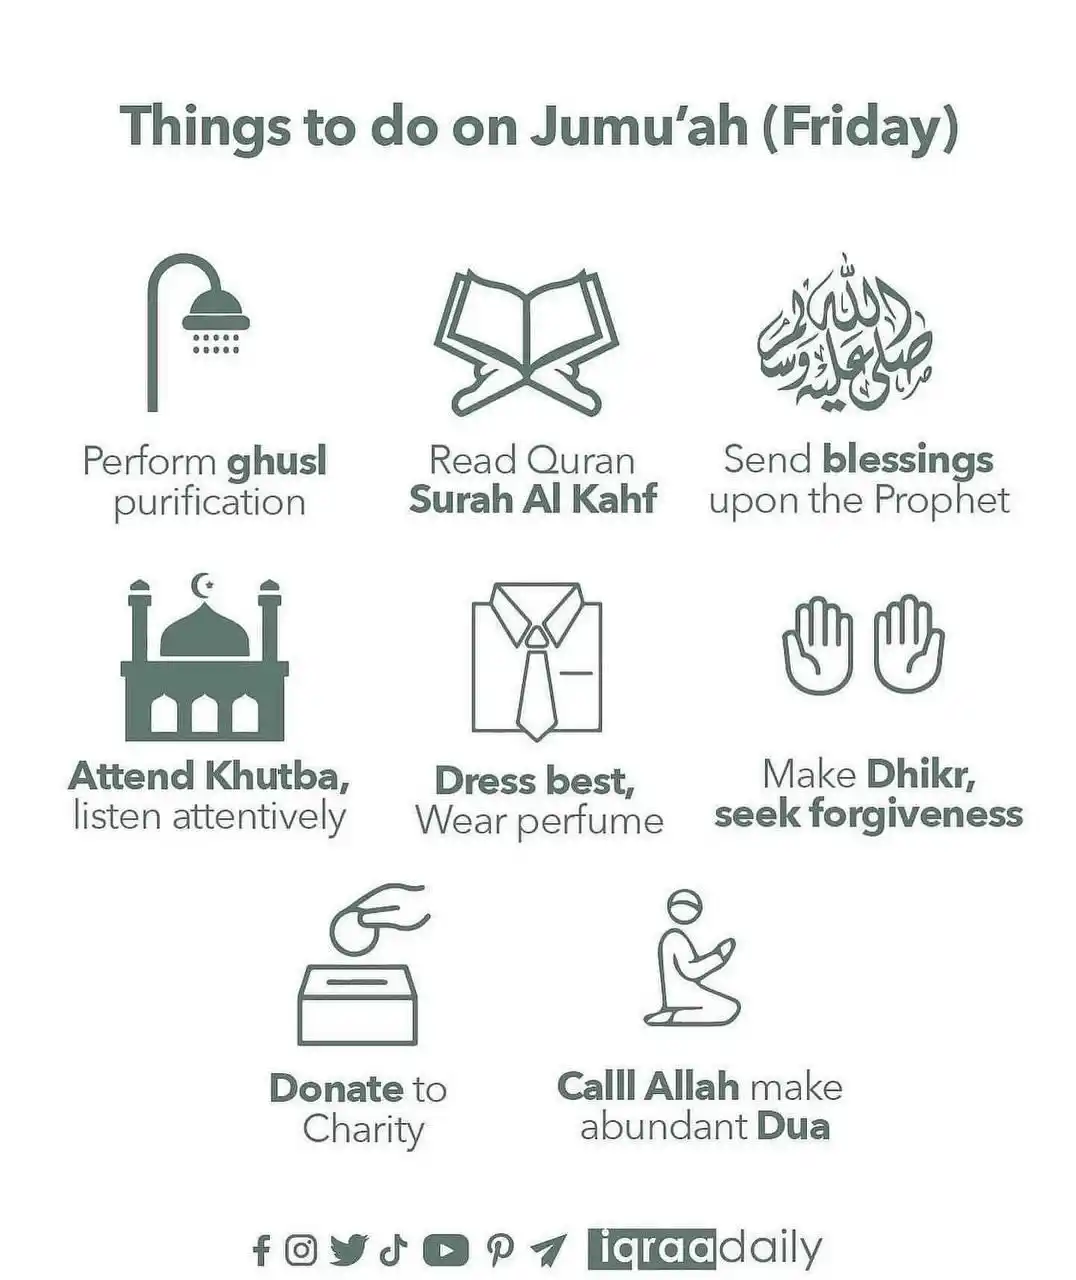 Things to do on Jumu'ah (Friday)
صلى الله عليه وسلم
Perform ghusl
purification
Read Quran
Surah Al Kahf
Send blessings
upon the Prophet
Attend Khutba,
listen attentively
Dress best,
Wear perfume
Make Dhikr,
seek forgiveness
Donate to
Charity
Calll Allah make
abundant Dua
iqraadaily